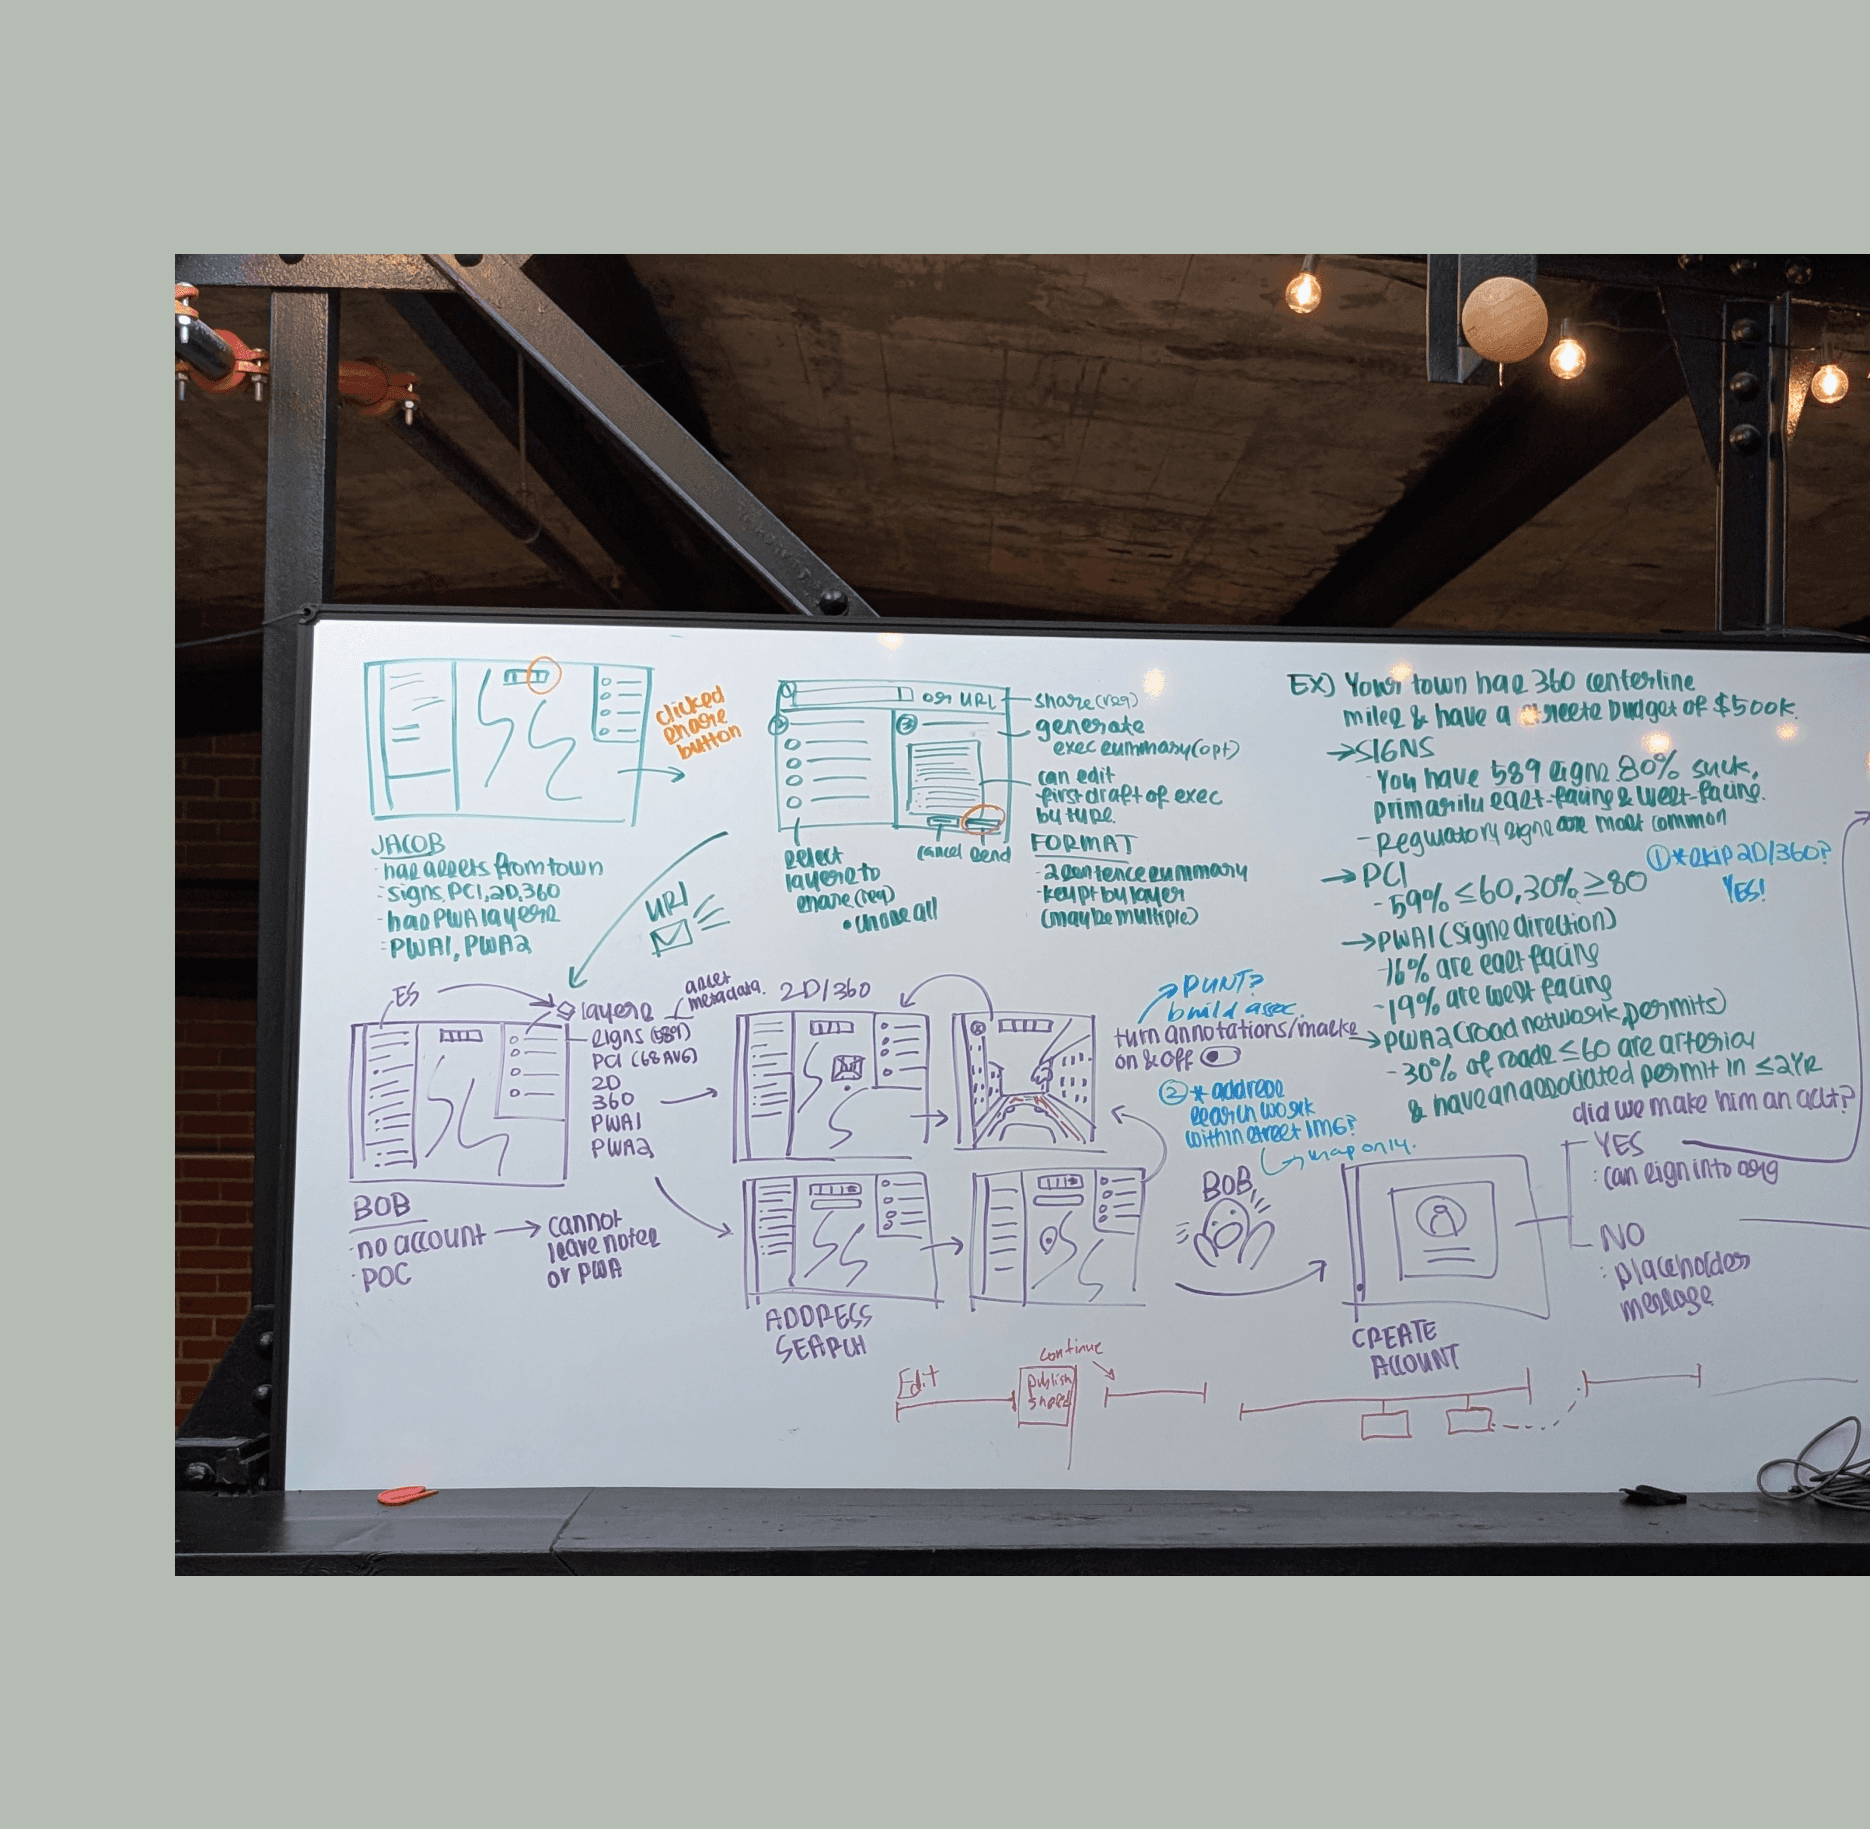 clicked
share
button
JACOB
- has assets from town
- signs, PCI, 2D, 360
- has PWA layers
- PWA1, PWA2
1
or URL
2
3
share (req)
generate
exec summary (opt)
can edit
first draft of exec
by type.
cancel send
select
layers to
share (req)
• choose all
FORMAT
- 2 sentence summary
- key pt by layer
(may be multiple)
URL
EX) Your town has 360 centerline
miles & have a streets budget of $500K.
→ SIGNS
- You have 589 signs. 80% suck,
primarily east-facing & west-facing.
- Regulatory signs are most common
→ PCI
- 59% ≤ 60, 30% ≥ 80
→ PWA1 (signs direction)
- 16% are east facing
- 19% are west facing
→ PWA2 (road network, permits)
- 30% of roads ≤ 60 are arterial
& have an associated permit in ≤ 2YR
1 * skip 2D/360?
YES!
ES
layers
asset
metadata.
signs (589)
PCI (68 AVG)
2D
360
PWA1
PWA2
BOB
- no account → cannot
leave notes
or PWA
· POC
2D/360
PUNT?
build assc.
turn annotations/masks
on & off
2 * address
search work
within street IMG?
map only.
ADDRESS
SEARCH
BOB
CREATE
ACCOUNT
did we make him an acct?
YES
: can sign into org
NO
: placeholder
message
Edit
publish
share
continue